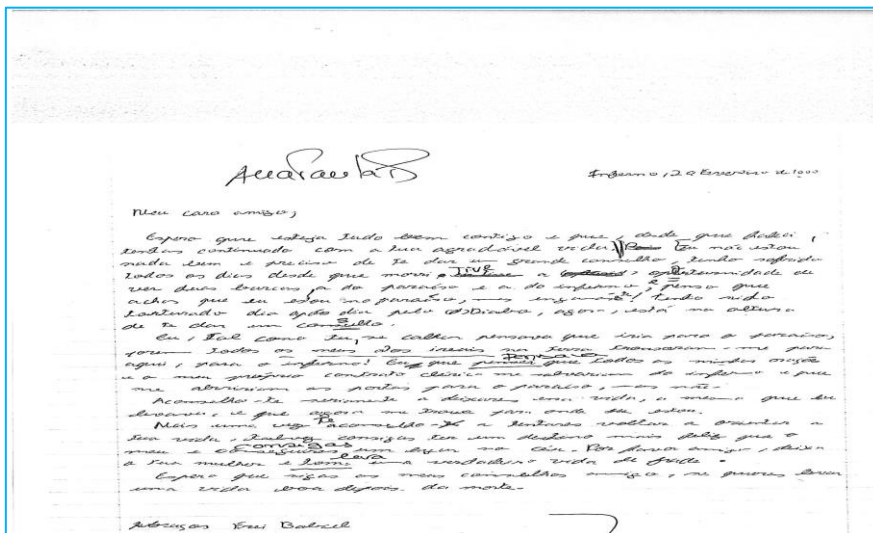 Inferno, 20 Fevereiro de 1000
Meu caro amigo,
Espero que esteja tudo bem contigo e que, desde que faleci,
tenhas continuado com a tua agradável vida. Eu não estou
nada bem e preciso de te dar um grande conselho, tenho sofrido
todos os dias desde que morri. Tive a oportunidade de
ver duas barcas, a do paraíso e a do inferno, penso que
achas que eu estou no paraíso, mas! Tenho sido
torturado dia após dia pelo Diabo, agora, está na altura
de te dar um conselho.
Eu, tal como tu, se calhar pensava que iria para o paraíso,
porem todos os meus na terra trouxeram-me para
aqui, para o inferno! Eu que todas as minhas orações
e o meu próprio contrato me salvariam do inferno e que
me abririam as portas para o paraíso, mas não.
Aconselho-te seriamente a deixares essa vida, a mesma que eu
levava, e que agora me trouxe para onde eu estou.
Mais uma vez te aconselho a tentares voltar a orientar a
tua vida, talvez consigas ter um destino mais feliz que o
meu e consigas um lugar no céu. Por favor amigo, deixa
a tua mulher e leva uma verdadeira vida de frade.
Espero que sigas os meus conselhos amigo, se queres levar
uma vida boa depois da morte.
Abraços Frei